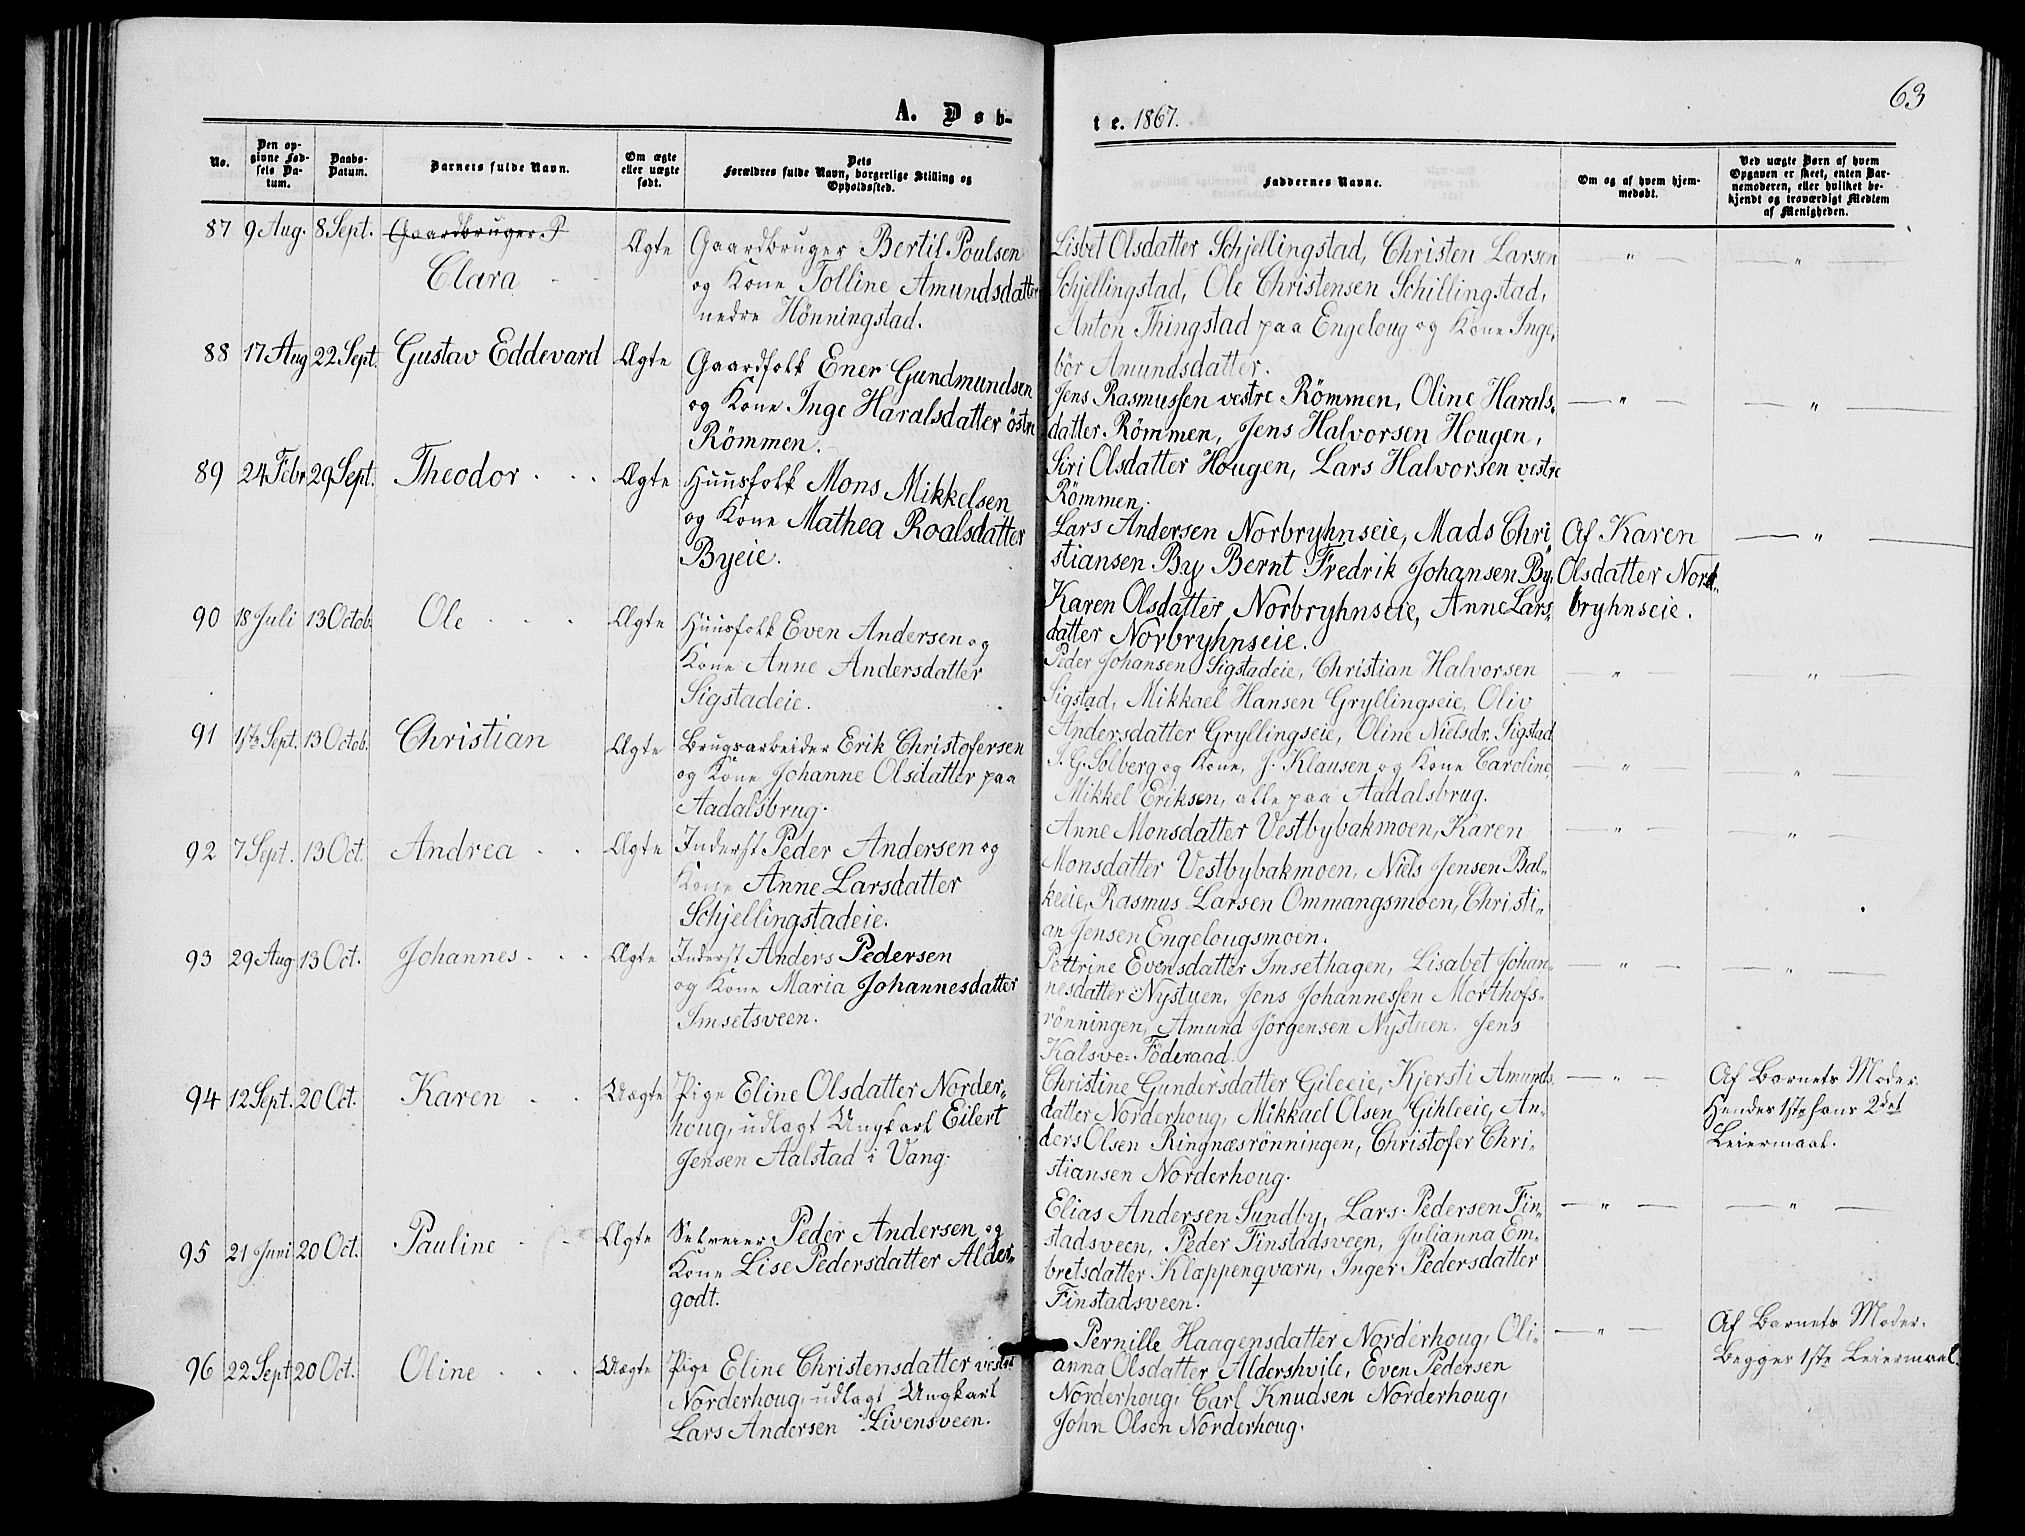 63
A. Døb-
te. 1867.
No.
Den op-
givne Fød-
sels Da-
tum.
Daabs-
Datum.
Barnets fulde Navn.
Om ægte
eller uægte
født.
Dets
Forældres fulde Navn, borgerlige Stilling og
Opholdssted.
Faddernes Navne.
Om og af hvem hjem-
medøbt.
Ved uægte Børn af hvem
Opgaven er skeet, enten Bar-
nemoderen, eller hvilket be-
kjendt og troværdigt Medlem
af Menigheden.
87 9 Aug. 8 Sept. Gaardbruger P
Clara
Ægte
Gaardbruger Bertil Poulsen
og Kone Tolline Amundsdatter
nedre Hönningstad.
Lisbet Olsdatter Schjellingstad, Christen Larsen
Schjellingstad, Ole Christensen Schillingstad,
Anton Thingstad paa Engeloug og Kone Inge,
bör Amundsdatter.
— " — — " —
88 17 Aug 22 Sept. Gustav Eddevard Ægte
Gaardfolk Ener Gundmundsen
og Kone Inge Haralsdatter östre
Römmen.
Jens Rasmussen vestre Römmen, Oline Harals-
datter Römmen, Jens Halvorsen Hougen,
Siri Olsdatter Hougen, Lars Halvorsen vestre
Römmen.
— " — — " —
89 24 Febr 29 Sept. Theodor Ægte
Huusfolk Mons Mikkelsen
og Kone Mathea Roalsdatter
Byeie.
Lars Andersen Norbryhnseie, Mads Chri
stiansen By, Bernt Fredrik Johansen By,
Karen Olsdatter, Norbryhnseie, Anne Lars-
datter Norbryhnseie.
Af Karen
Olsdatter Nord-
bryhnseie.
— " —
90 18 Juli 13 Octob. Ole Ægte
Huusfolk Even Andersen og
Kone Anne Andersdatter
Sigstadeie.
Peder Johansen Sigstadeie, Christian Halvorsen
Sigstad, Mikkael Hansen Gryllingseie, Oliv
Andersdatter Gryllingseie, Oline Nielsdr. Sigstad
— " — — " —
91 1ste Sept. 13 Octob. Christian Ægte
Brugsarbeider Erik Christofersen
og Kone Johanne Olsdatter paa
Aadalsbrug.
I. G. Solberg og Kone, J. Klausen og Kone Caroline,
Mikkel Eriksen, alle paa Aadalsbrug.
— " — — " —
92 7 Sept. 13 Oct. Andrea Ægte
Inderst Peder Andersen og
Kone Anne Larsdatter
Schjellingstadeie.
Anne Monsdatter Vestbybakmoen, Karen
Monsdatter Vestbybakmoen, Niels Jensen Bal-
keeie, Rasmus Larsen Ommangsmoen, Christi-
an Jensen Engelougsmoen.
— " — — " —
93 29 Aug 13 Oct. Johannes Ægte
Inderst Anders Pedersen
og Kone Maria Johannesdatter
Imsetsveen.
Pettrine Evensdatter Imsethagen, Lisabet Johan-
nesdatter Nystuen, Jens Johannessen Morthofs-
rönningen, Amund Jörgensen Nystuen, Jens
Kalsve: Föderaad.
— " — — " —
94 12 Sept. 20 Oct. Karen Uægte
Pige Eline Olsdatter Norder-
houg, udlagt Ungkarl Eilert
Jensen Aalstad i Vang.
Christine Gundersdatter Gileeie, Kjersti Amunds,
datter Norderhoug, Mikkael Olsen Gihleeie, An-
ders Olsen Ringnæsrönningen, Christofer Chri-
stiansen Norderhoug.
— " —
Af Barnets Moder.
Hendes 1ste hans 2det
Leiermaal.
95 21 Juni 20 Oct. Pauline Ægte
Selveier Peder Andersen og
Kone Lise Pedersdatter Alder-
godt.
Elias Andersen Sundby, Lars Pedersen Fin-
stadsveen, Peder Finstadsveen, Julianna Em-
bretsdatter Klæppenqvarn, Inger Pedersdatter
Finstadsveen.
— " — — " —
96 22 Sept 20 Oct. Oline Uægte
Pige Eline Christensdatter vestre
Norderhoug, udlagt Ungkarl
Lars Andersen Livensveen.
Pernille Haagensdatter Norderhoug, Oli-
anna Olsdatter Aldershvile, Even Pedersen
Norderhoug, Carl Knudsen Norderhoug,
John Olsen Norderhoug.
— " —
Af Barnets Moder.
Begges 1ste Leiermaal.